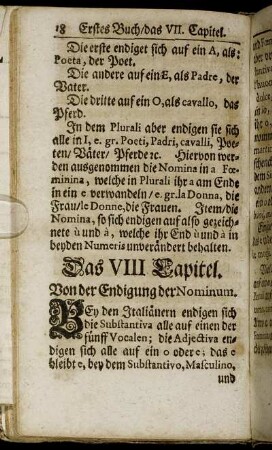 18 Erstes Buch/das VII. Capitel.
Die erste endiget sich auf ein A, als:
Poeta, der Poet.
Die andere auf ein Æ, als Padre, der
Vater.
Die dritte auf ein O, als cavallo, das
Pferd.
In dem Plurali aber endigen sie sich
alle in I, e. gr. Poeti, Padri, cavalli, Poe-
ten/ Väter/ Pferde ꝛc. Hiervon wer-
den ausgenommen die Nomina in a Fœ-
minina, welche in Plurali ihr a am Ende
in ein e verwandeln/ e. gr. la Donna, die
Frau/ le Donne, die Frauen. Item/ die
Nomina, so sich endigen auf also gezeich-
nete ù und à, welche ihr End ù und à in
beyden Numeris unverändert behalten.
Das VIII Capitel.
Von der Endigung der Nominum.
BEy den Italiänern endigen sich
die Substantiva alle auf einen der
fünff Vocalen; die Adjectiva en-
digen sich alle auf ein o oder e; das e
bleibt e, bey dem Substantivo, Masculino,
und